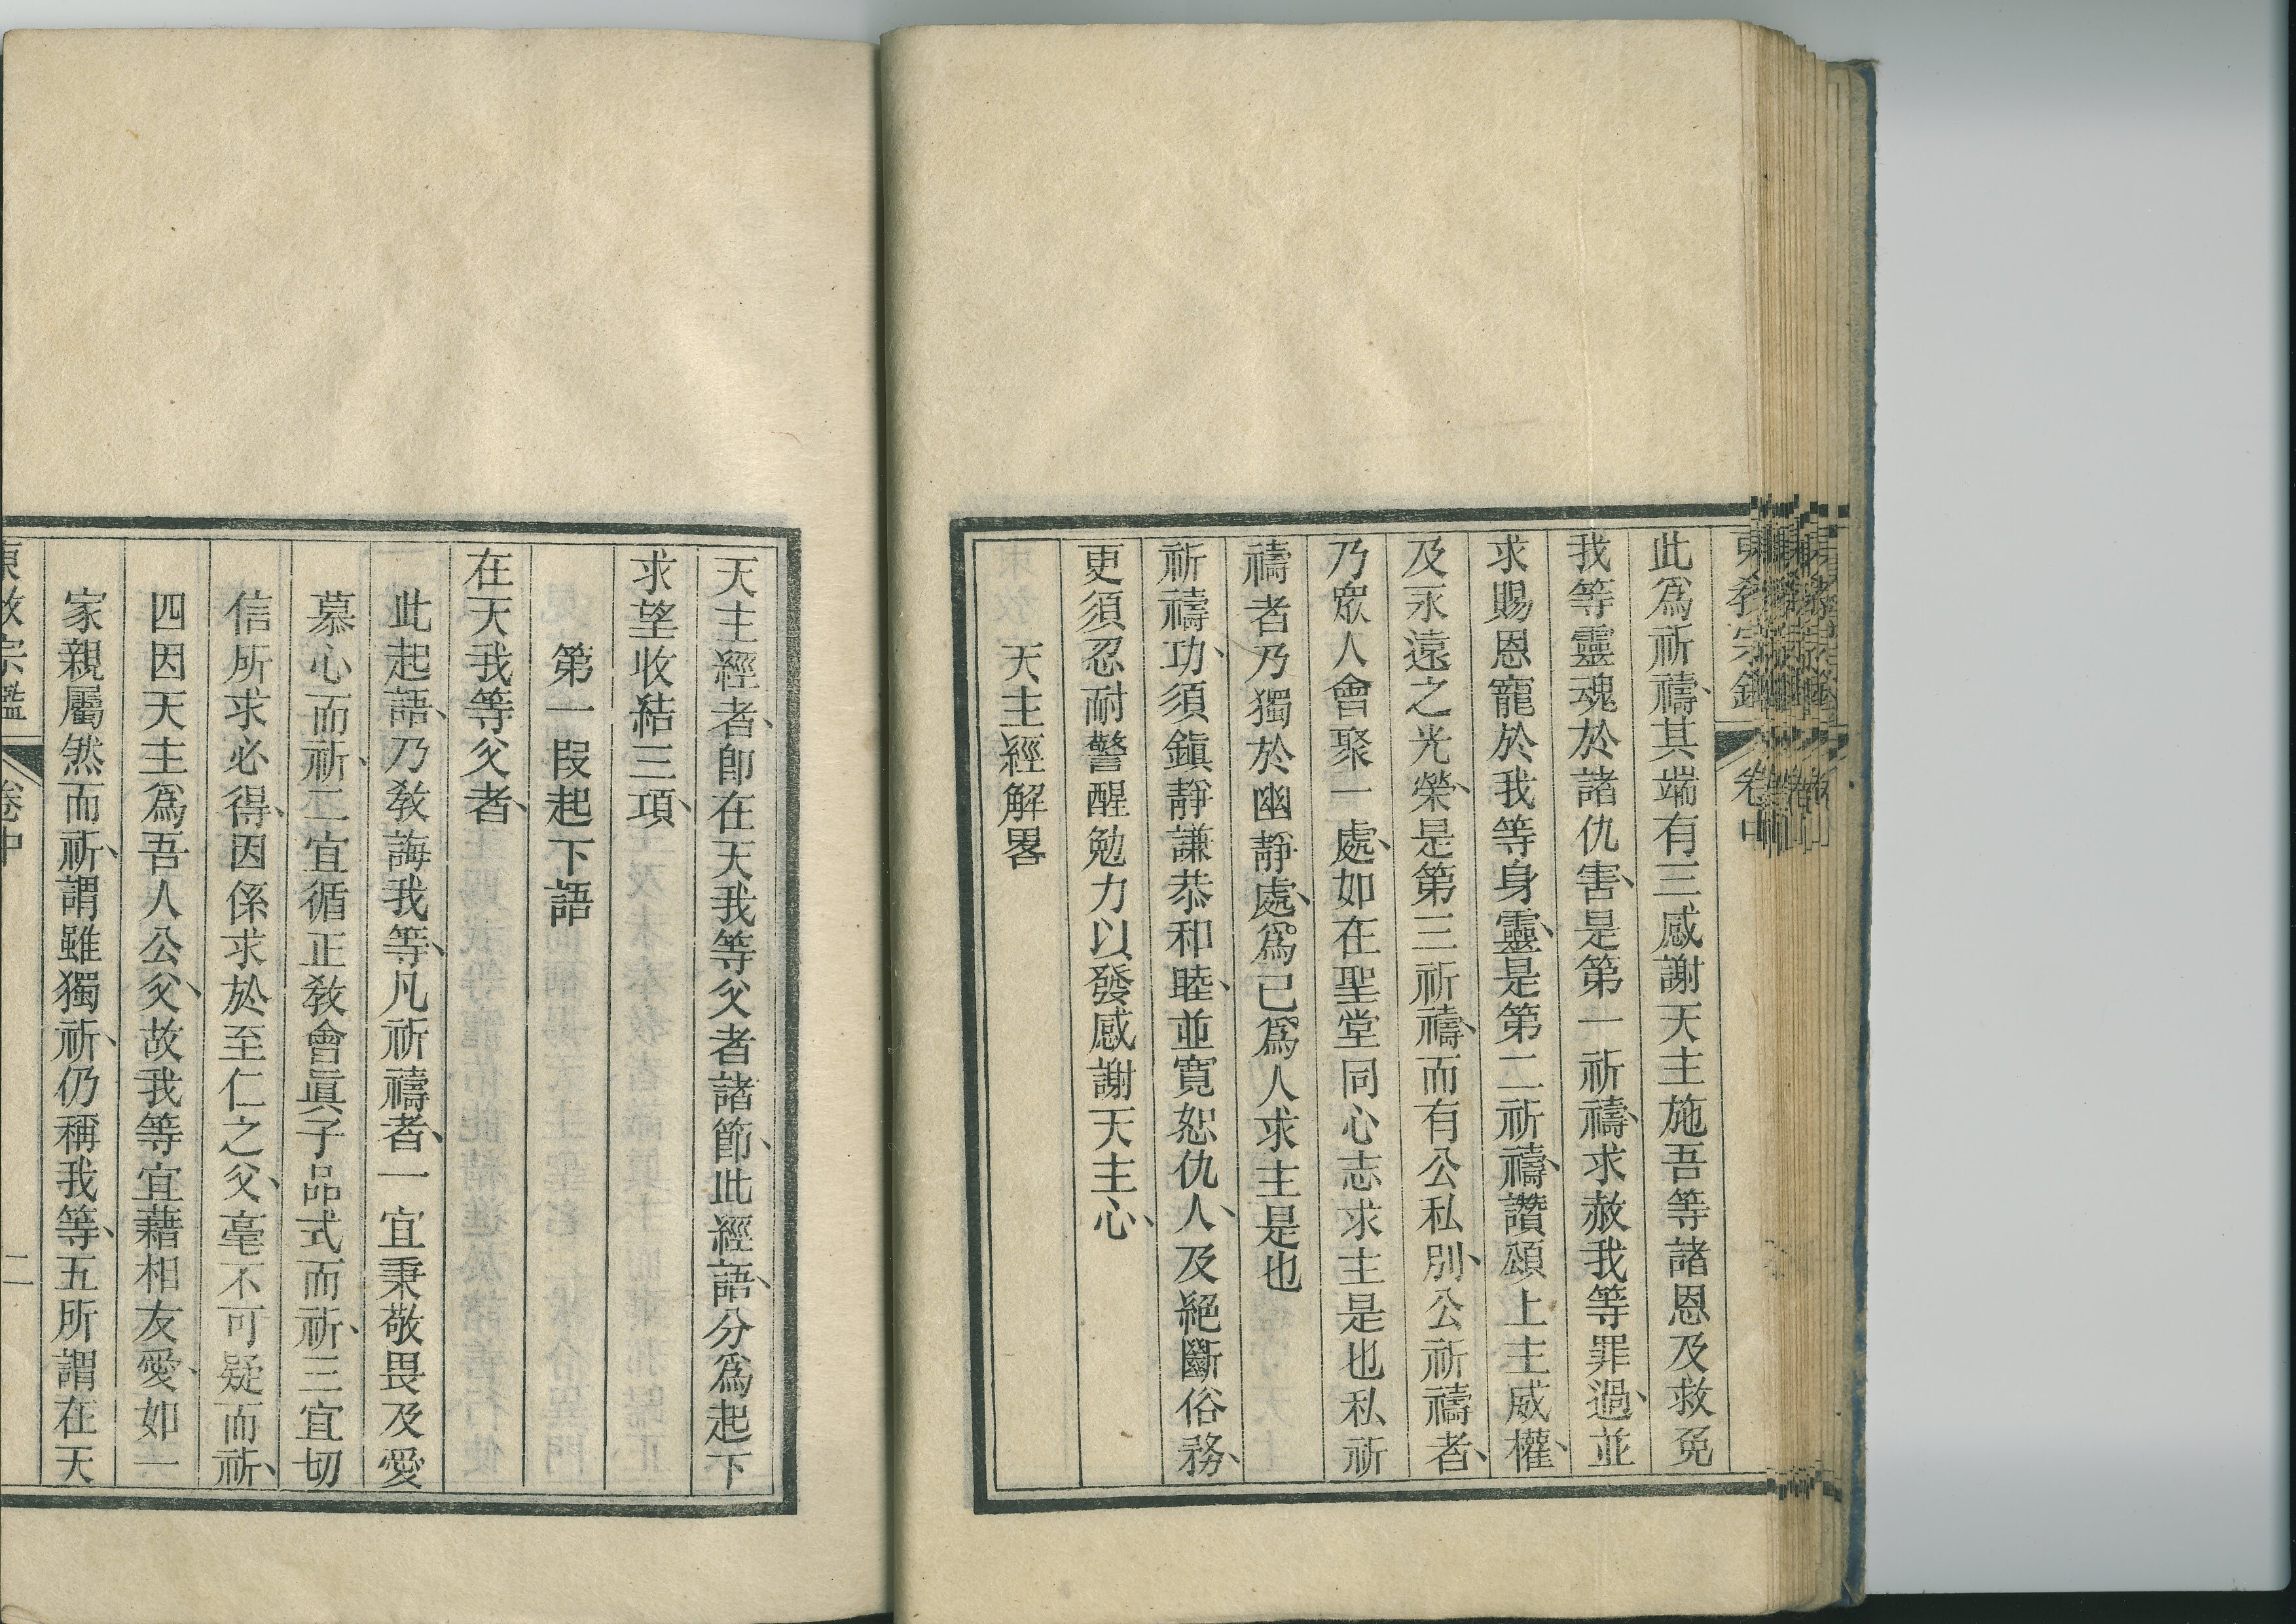 東教宗鑑 卷中
此爲祈禱、其端有三感謝天主施吾等諸恩及救免
我等靈魂於諸仇害、是第一祈禱、求赦我等罪過、並
求賜恩寵於我等身靈、是第二祈禱、讚頌上主威權、
及永遠之光榮、是第三祈禱、而有公私別、公祈禱者、
乃眾人會聚一處、如在聖堂同心志求主是也私祈
禱者乃獨於幽靜處、爲己爲人求主是也
祈禱功、須鎮靜謙恭和睦、並寬恕仇人、及絕斷俗務、
更須忍耐警醒勉力以發感謝天主心、
天主經解畧
天主經者、卽在天我等父者諸節、此經語、分爲起下
求望收結三項、
第一段起下語
在天我等父者、
此起語、乃教誨我等、凡祈禱者、一宜秉敬畏及愛
慕心而祈、二宜循正教會眞子品式而祈、三宜切
信所求必得、因係求於至仁之父、毫不可疑而祈、
四因天主爲吾人公父、故我等宜藉相友愛、如一
家親屬然而祈、謂雖獨祈、仍稱我等、五所謂在天
東教宗鑑 卷中 二